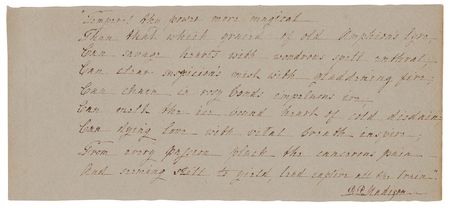 "Temper! thy power more magical
Than that which graced of old Amphion's lyre,
Can savage hearts with wondrous spell enthral;
Can clear suspicion's mist with gladdening fire;
Can chain in rosy bonds impetuous ire;
Can melt the ice round hearts of cold disdain
Can dying love with vital breath inspire;
From every passion pluck the cancerous pain
And seeming still to yield, lead captive all the train".
D. P. Madison